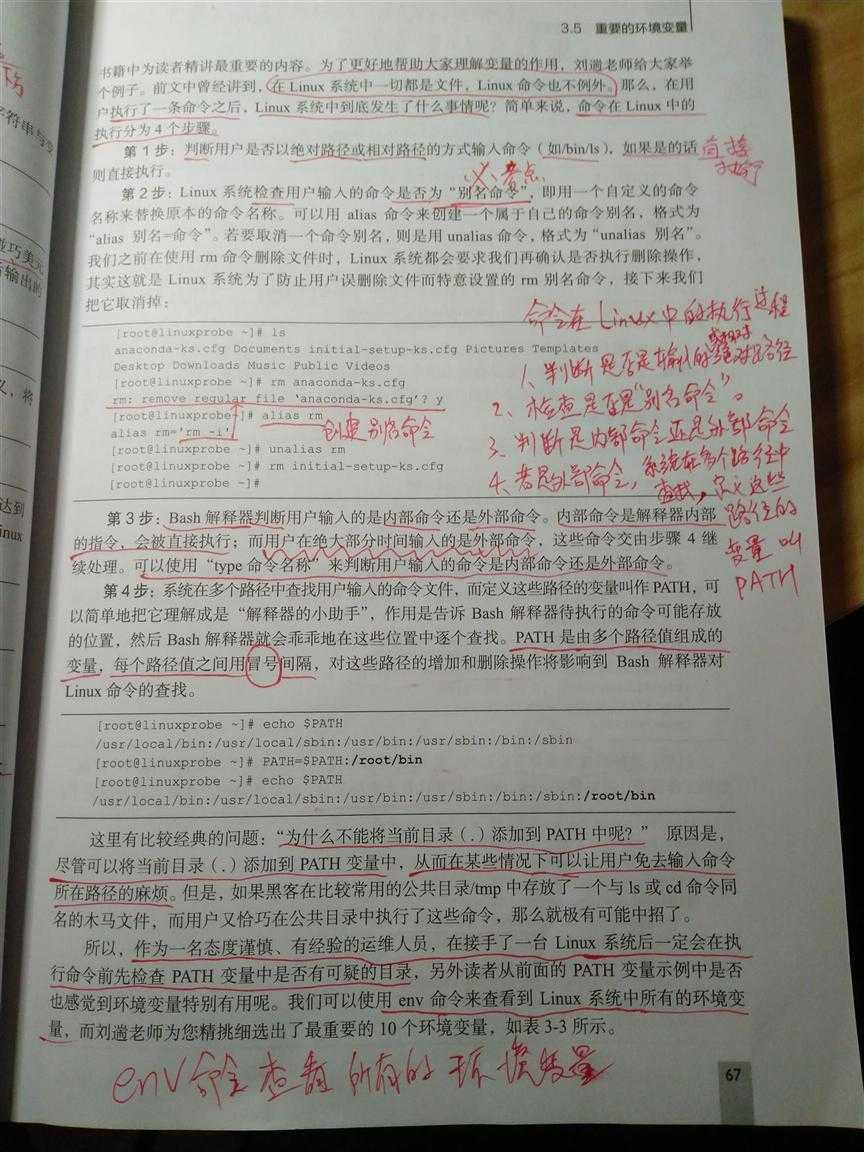 3.5 重要的环境变量
书籍中为读者精讲最重要的内容。为了更好地帮助大家理解变量的作用，刘遄老师给大家举
个例子。前文中曾经讲到，在 Linux 系统中一切都是文件，Linux 命令也不例外。那么，在用
户执行了一条命令之后，Linux 系统中到底发生了什么事情呢？简单来说，命令在 Linux 中的
执行分为 4 个步骤。
第 1 步：判断用户是否以绝对路径或相对路径的方式输入命令（如/bin/ls），如果是的话
则直接执行。
直接
执行
第 2 步：Linux 系统检查用户输入的命令是否为“别名命令”，即用一个自定义的命令
名称来替换原本的命令名称。可以用 alias 命令来创建一个属于自己的命令别名，格式为
“alias 别名=命令”。若要取消一个命令别名，则是用 unalias 命令，格式为“unalias 别名”。
我们之前在使用 rm 命令删除文件时，Linux 系统都会要求我们再确认是否执行删除操作，
其实这就是 Linux 系统为了防止用户误删除文件而特意设置的 rm 别名命令，接下来我们
把它取消掉：
[root@linuxprobe ~]# ls
anaconda-ks.cfg Documents initial-setup-ks.cfg Pictures Templates
Desktop Downloads Music Public Videos
[root@linuxprobe ~]# rm anaconda-ks.cfg
rm: remove regular file 'anaconda-ks.cfg'? y
[root@linuxprobe~]# alias rm
alias rm='rm -i'
创建别名命令
[root@linuxprobe ~]# unalias rm
[root@linuxprobe ~]# rm initial-setup-ks.cfg
[root@linuxprobe ~]#
命令在 Linux 中的执行过程
1、判断是否是输入的绝对路径
或相对
2、检查是否是“别名命令”。
3、判断是内部命令还是外部命令
4、若是外部命令，系统在多个路径中
查找，定义这些
路径的
变量叫
PATH
第 3 步：Bash 解释器判断用户输入的是内部命令还是外部命令。内部命令是解释器内部
的指令，会被直接执行；而用户在绝大部分时间输入的是外部命令，这些命令交由步骤 4 继
续处理。可以使用“type 命令名称”来判断用户输入的命令是内部命令还是外部命令。
第 4 步：系统在多个路径中查找用户输入的命令文件，而定义这些路径的变量叫作 PATH，可
以简单地把它理解成是“解释器的小助手”，作用是告诉 Bash 解释器待执行的命令可能存放
的位置，然后 Bash 解释器就会乖乖地在这些位置中逐个查找。PATH 是由多个路径值组成的
变量，每个路径值之间用冒号间隔，对这些路径的增加和删除操作将影响到 Bash 解释器对
Linux 命令的查找。
[root@linuxprobe ~]# echo $PATH
/usr/local/bin:/usr/local/sbin:/usr/bin:/usr/sbin:/bin:/sbin
[root@linuxprobe ~]# PATH=$PATH:/root/bin
[root@linuxprobe ~]# echo $PATH
/usr/local/bin:/usr/local/sbin:/usr/bin:/usr/sbin:/bin:/sbin:/root/bin
这里有比较经典的问题：“为什么不能将当前目录（.）添加到 PATH 中呢？” 原因是，
尽管可以将当前目录（.）添加到 PATH 变量中，从而在某些情况下可以让用户免去输入命令
所在路径的麻烦。但是，如果黑客在比较常用的公共目录/tmp 中存放了一个与 ls 或 cd 命令同
名的木马文件，而用户又恰巧在公共目录中执行了这些命令，那么就极有可能中招了。
所以，作为一名态度谨慎、有经验的运维人员，在接手了一台 Linux 系统后一定会在执
行命令前先检查 PATH 变量中是否有可疑的目录，另外读者从前面的 PATH 变量示例中是否
也感觉到环境变量特别有用呢。我们可以使用 env 命令来查看到 Linux 系统中所有的环境变
量，而刘遄老师为您精挑细选出了最重要的 10 个环境变量，如表 3-3 所示。
env 命令查看所有的环境变量
67
符串与变
巧美元
输出的
义，将
达到
inux